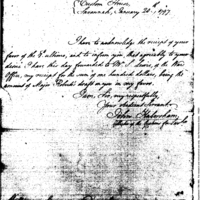 Custom House
Savannah, January 20th 1797
Sir
I have to acknowledge the receipt of your
favor of the Ultimo, and to inform you that agreeably to your
desire I have this day forwarded to Mr. S. Lewis, at the War
Office, my receipt for the sum of one hundred dollars, being the
amount of Major draft on you in my favor.
I am, Sir, very respectfully,
Your obedient Servant
John Habersham